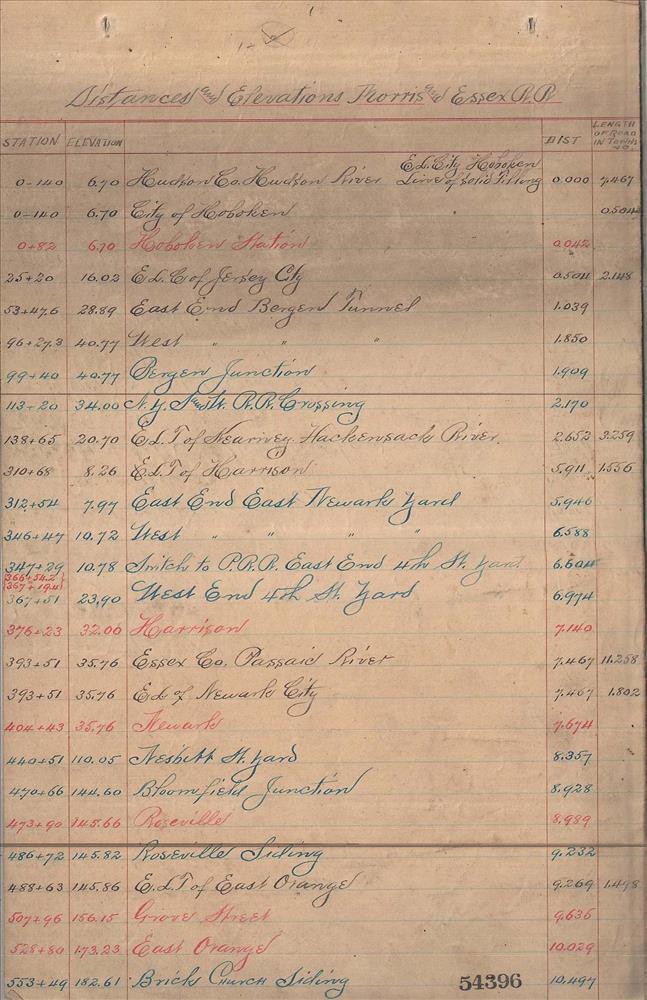 Distances and Elevations Morris and Essex R.R
STATION ELEVATION DIST LENGTH OF ROAD IN TOWNS &C.
E.L. City Hoboken
0-140 6.70 Hudson Co. Hudson River Line of Solid Filling 0.000 7.467
0-140 6.70 City of Hoboken 0.504
0+82 6.70 Hoboken Station 0.042
25+20 16.02 E.L.C of Jersey City 0.504 2.148
53+47.6 28.89 East End Bergen Tunnel 1.039
96+27.3 40.77 West " " " 1.850
99+40 40.77 Bergen Junction 1.909
113+20 34.00 N.Y. S and W. R.R. Crossing 2.170
138+65 20.70 E.L.T of Kearney. Hackensack River. 2.652 3.259
310+68 8.26 E.L.T of Harrison 5.911 1.556
312+54 7.97 East End East Newark Yard 5.946
346+47 10.72 West " " " " 6.588
347+29 10.78 Switch to P.R.R. East End 4th St. Yard 6.604
366+54.2
367+19.4
367+51 23.90 West End 4th St. Yard 6.974
376+23 32.00 Harrison 7.140
393+51 35.76 Essex Co. Passaic River 7.467 11.258
393+51 35.76 E.L of Newark City 7.467 1.802
404+43 35.76 Newark 7.674
440+51 110.05 Nesbitt St. Yard 8.357
470+66 144.60 Bloomfield Junction 8.928
473+90 145.66 Roseville 8.989
486+72 145.82 Roseville Siding 9.232
488+63 145.86 E.L.T of East Orange 9.269 1.498
507+96 156.15 Grove Street 9.635
528+80 173.23 East Orange 10.029
553+49 182.61 Brick Church Siding 54396 10.497